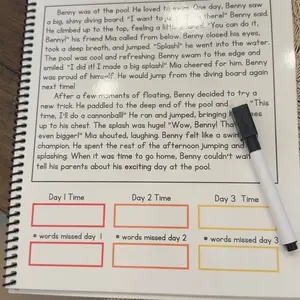 Benny was at the pool. He loved to swim. One day, Benny saw
a big, shiny diving board. "I want to there!" Benny said.
He climbed up to the top, feeling a little "You can do it,
Benny!" his friend Mia called from below. Benny closed his eyes,
took a deep breath, and jumped. "Splash!" he went into the water.
The pool was cool and refreshing. Benny swam to the edge and
smiled. "I did it! I made a big splash!" Mia cheered for him. Benny
was proud of himself. He would jump from the diving board again
next time!
After a few moments of floating, Benny decided to try a
new trick. He paddled to the deep end of the pool and "This
time, I'll do a cannonball!" He ran and jumped, bringing
up to his chest. The splash was huge! "Wow, Benny!
even bigger!" Mia shouted, laughing. Benny felt like a
champion. He spent the rest of the afternoon jumping and
splashing. When it was time to go home, Benny couldn't wait
tell his parents about his exciting day at the pool.
Day 1 Time Day 2 Time Day 3 Time
# words missed day 1 # words missed day 2 # words missed day 3